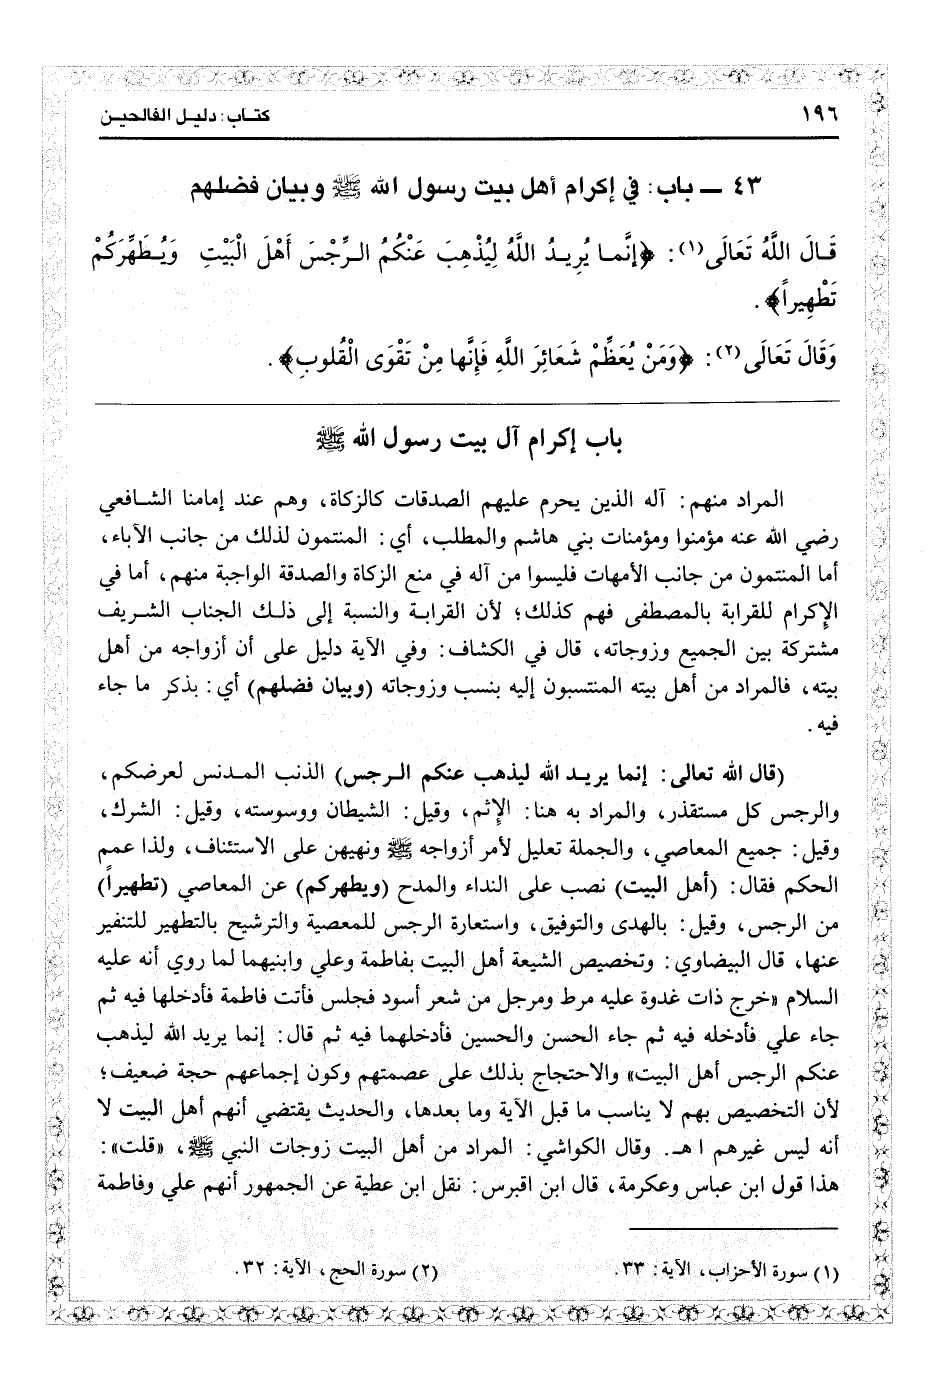 ١٩٦
كتاب: دليل الفالحين
٤٣ ـ باب: في إكرام أهل بيت رسول الله ﷺ وبيان فضلهم
قَالَ اللَّهُ تَعَالَى(١): ﴿إِنَّما يُرِيدُ اللَّهُ لِيُذْهِبَ عَنْكُمُ الرِّجْسَ أَهْلَ الْبَيْتِ وَيُطَهِّرَكُمْ
تَطْهِيراً﴾.
وَقَالَ تَعَالَى(٢): ﴿وَمَنْ يُعَظِّمْ شَعَائِرَ اللَّهِ فَإِنَّها مِنْ تَقْوَى الْقُلوبِ﴾.
باب إكرام آل بيت رسول الله ﷺ
المراد منهم: آله الذين يحرم عليهم الصدقات كالزكاة، وهم عند إمامنا الشافعي
رضي الله عنه مؤمنوا ومؤمنات بني هاشم والمطلب، أي: المنتمون لذلك من جانب الآباء،
أما المنتمون من جانب الأمهات فليسوا من آله في منع الزكاة والصدقة الواجبة منهم، أما في
الإكرام للقرابة بالمصطفى فهم كذلك؛ لأن القرابة والنسبة إلى ذلك الجناب الشريف
مشتركة بين الجميع وزوجاته، قال في الكشاف: وفي الآية دليل على أن أزواجه من أهل
بيته، فالمراد من أهل بيته المنتسبون إليه بنسب وزوجاته (وبيان فضلهم) أي: بذكر ما جاء
فيه.
(قال الله تعالى: إنما يريد الله ليذهب عنكم الرجس) الذنب المدنس لعرضكم،
والرجس كل مستقذر، والمراد به هنا: الإثم، وقيل: الشيطان ووسوسته، وقيل: الشرك،
وقيل: جميع المعاصي، والجملة تعليل لأمر أزواجه ﷺ ونهيهن على الاستئناف، ولذا عمم
الحكم فقال: (أهل البيت) نصب على النداء والمدح (ويطهركم) عن المعاصي (تطهيراً)
من الرجس، وقيل: بالهدى والتوفيق، واستعارة الرجس للمعصية والترشيح بالتطهير للتنفير
عنها، قال البيضاوي: وتخصيص الشيعة أهل البيت بفاطمة وعلي وابنيهما لما روي أنه عليه
السلام «خرج ذات غدوة عليه مرط ومرجل من شعر أسود فجلس فأتت فاطمة فأدخلها فيه ثم
جاء علي فأدخله فيه ثم جاء الحسن والحسين فأدخلهما فيه ثم قال: إنما يريد الله ليذهب
عنكم الرجس أهل البيت» والاحتجاج بذلك على عصمتهم وكون إجماعهم حجة ضعيف؛
لأن التخصيص بهم لا يناسب ما قبل الآية وما بعدها، والحديث يقتضي أنهم أهل البيت لا
أنه ليس غيرهم اهـ. وقال الكواشي: المراد من أهل البيت زوجات النبي ﷺ، «قلت»:
هذا قول ابن عباس وعكرمة، قال ابن اقبرس: نقل ابن عطية عن الجمهور أنهم علي وفاطمة
(١) سورة الأحزاب، الآية: ٣٣.
(٢) سورة الحج، الآية: ٣٢.